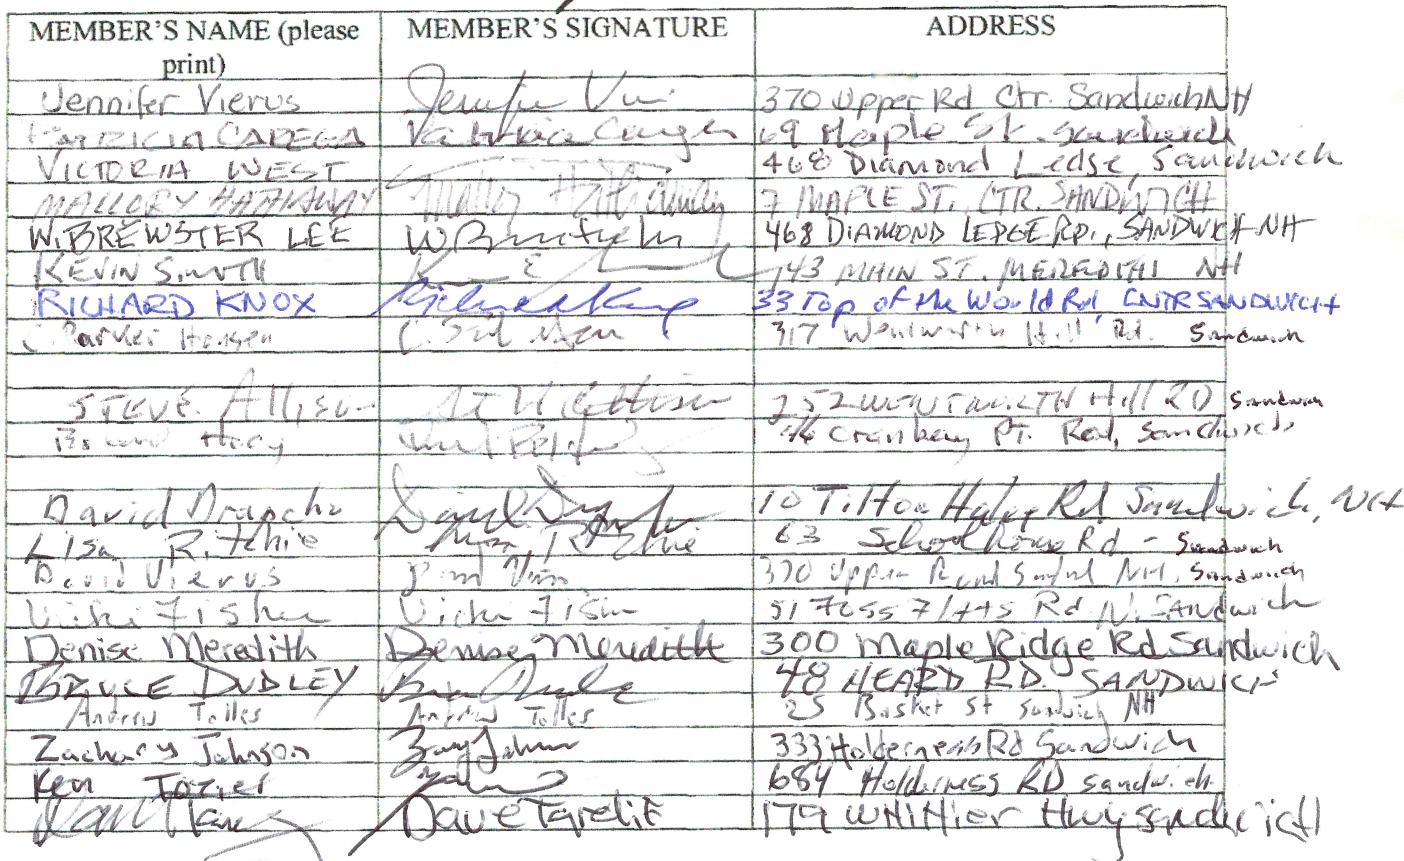 MEMBER'S NAME (please print) MEMBER'S SIGNATURE ADDRESS
Jennifer Vierus 370 Upper Rd Ctr. Sandwich NH
PATRICIA CAREGA Patricia Carega 69 Maple St. Sandwich
VICTORIA WEST 468 Diamond Ledge, Sandwich
MALLORY HATHAWAY Mallory Hathaway 7 MAPLE ST., CTR. SANDWICH
W. BREWSTER LEE 468 DIAMOND LEDGE RD., SANDWICH NH
KEVIN SMITH 143 MAIN ST. MEREDITH NH
RICHARD KNOX Richard Knox 33 Top of the World Rd, CNTR SANDWICH
Parker Hansen 317 Wentworth Hill Rd. Sandwich
STEVE Allison 252 WENTWORTH Hill RD Sandwich
Cranberry Pt. Road, Sandwich
David 10 Tilton Haley Rd Sandwich, NH
Lisa Ritchie Lisa Ritchie 63 Schoolhouse Rd - Sandwich
David Vierus 370 Upper Road NH, Sandwich
Vicki Fisher Vicki 51 Foss Flats Rd N. Sandwich
Denise Meredith Denise Meredith 300 Maple Ridge Rd Sandwich
BRUCE DUDLEY 48 HEARD RD. SANDWICH
Andrew Tolles Andrew Tolles 25 Basket St Sandwich NH
Zachary Johnson 333 Holderness Rd Sandwich
Ken Tozier 684 Holderness RD sandwich
Dave 179 WHittier Hwy sandwich